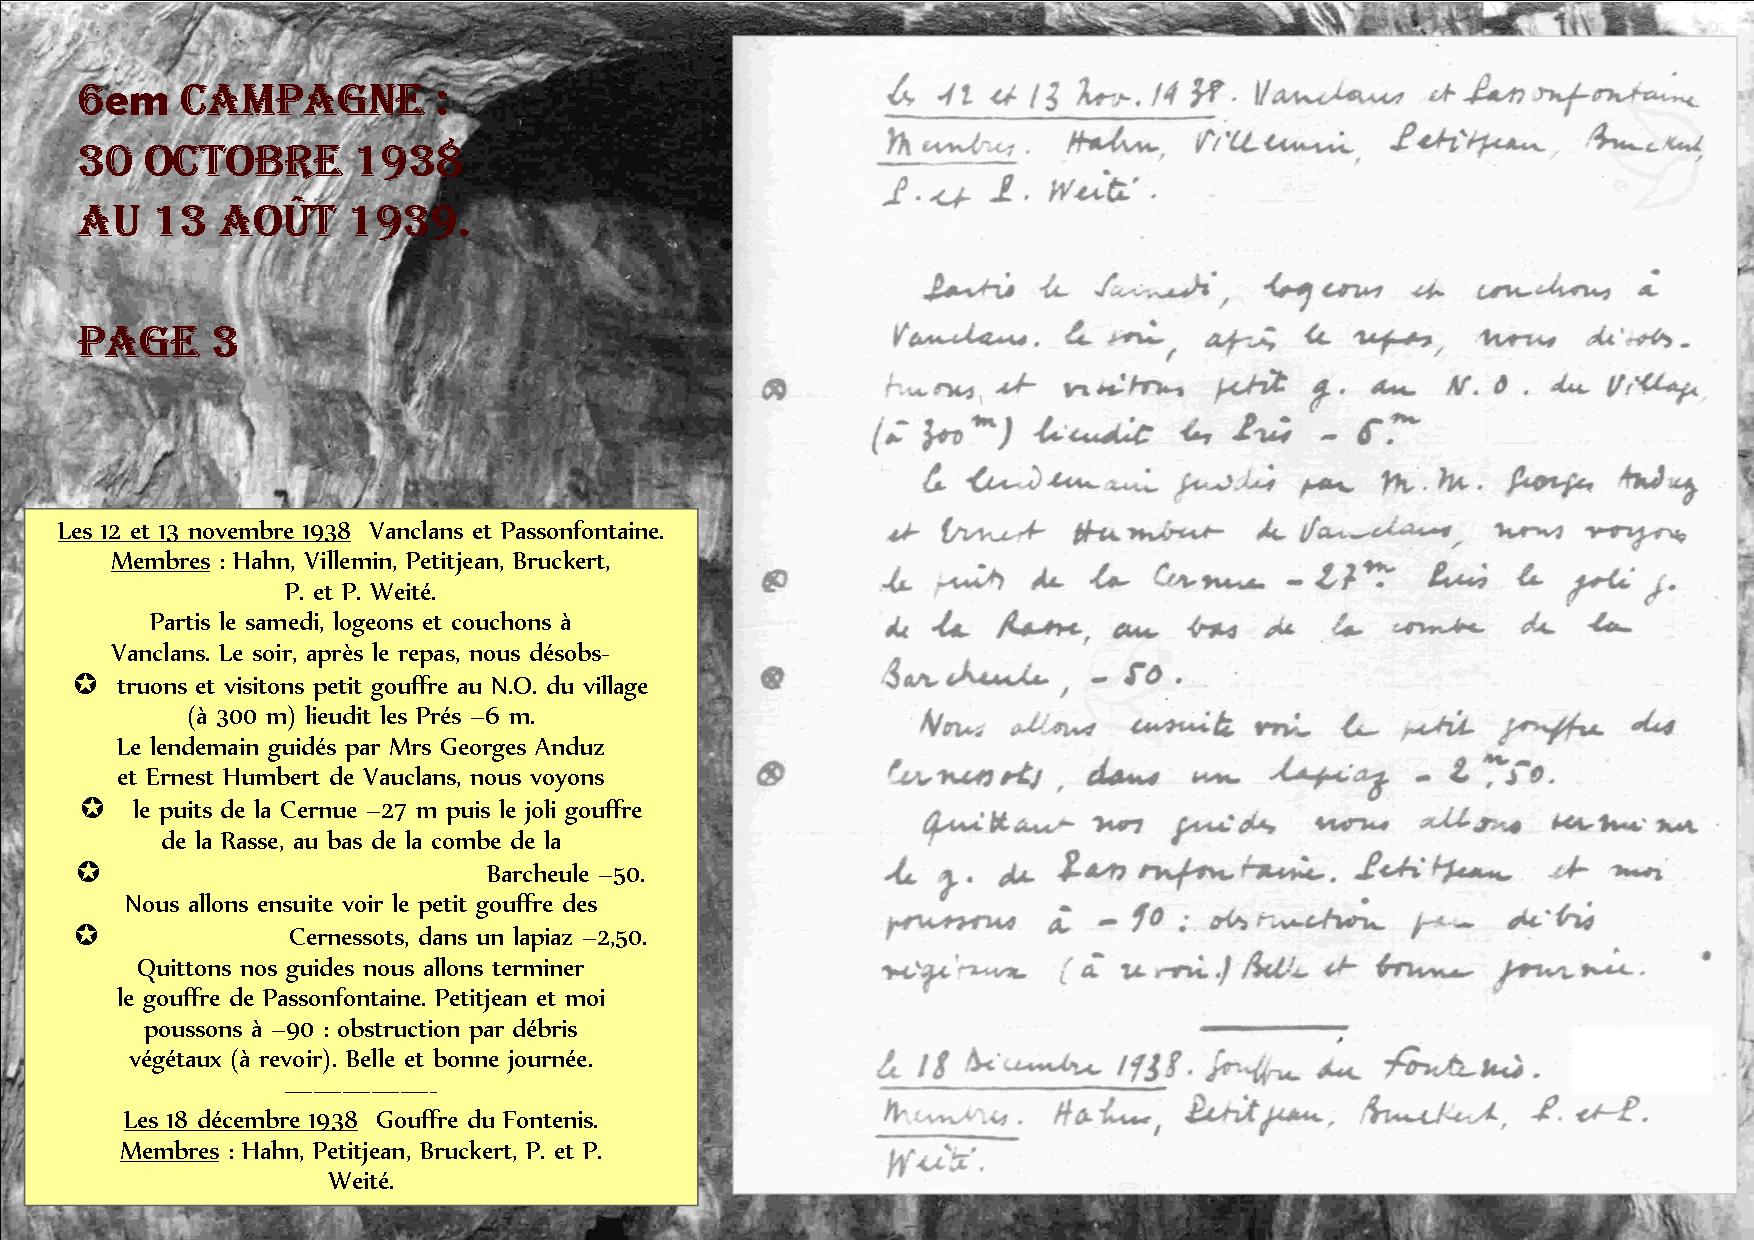 6em CAMPAGNE :
30 OCTOBRE 1938
AU 13 AOÛT 1939.
PAGE 3
Les 12 et 13 novembre 1938 Vanclans et Passonfontaine.
Membres : Hahn, Villemin, Petitjean, Bruckert,
P. et P. Weité.
Partis le samedi, logeons et couchons à
Vanclans. Le soir, après le repas, nous désobs-
✪ truons et visitons petit gouffre au N.O. du village
(à 300 m) lieudit les Prés –6 m.
Le lendemain guidés par Mrs Georges Anduz
et Ernest Humbert de Vauclans, nous voyons
✪ le puits de la Cernue –27 m puis le joli gouffre
de la Rasse, au bas de la combe de la
✪ Barcheule –50.
Nous allons ensuite voir le petit gouffre des
✪ Cernessots, dans un lapiaz –2,50.
Quittons nos guides nous allons terminer
le gouffre de Passonfontaine. Petitjean et moi
poussons à –90 : obstruction par débris
végétaux (à revoir). Belle et bonne journée.
——————-
Les 18 décembre 1938 Gouffre du Fontenis.
Membres : Hahn, Petitjean, Bruckert, P. et P.
Weité.
Les 12 et 13 Nov. 1938. Vanclans et Passonfontaine
Membres. Hahn, Villemin, Petitjean, Bruckert,
P. et P. Weité.
Partis le Samedi, logeons et couchons à
Vanclans. Le soir, après le repas, nous désobs-
truons, et visitons petit g. au N.O. du Village,
(à 300m) lieudit les Prés - 6.m
Le lendemain guidés par M.M. Georges Anduz
et Ernest Humbert de Vanclans, nous voyons
le puits de la Cernue - 27m. Puis le joli g.
de la Rasse, au bas de la combe de la
Barcheule, - 50.
Nous allons ensuite voir le petit gouffre des
Cernessots, dans un lapiaz - 2m,50.
Quittant nos guides nous allons terminer
le g. de Passonfontaine. Petitjean et moi
poussons à - 90 : obstruction par débris
végétaux (à revoir) Belle et bonne journée.
Le 18 Décembre 1938. Gouffre du Fontenis.
Membres. Hahn, Petitjean, Bruckert, P. et P.
Weité.